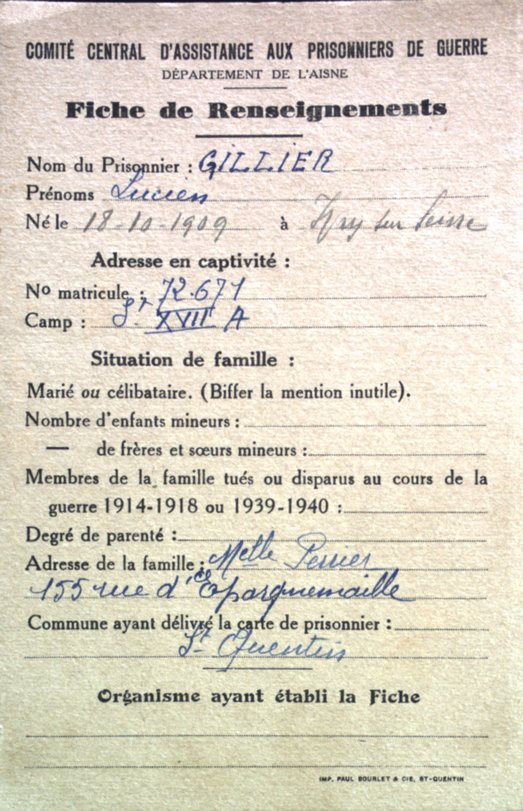 COMITÉ CENTRAL D'ASSISTANCE AUX PRISONNIERS DE GUERRE
DÉPARTEMENT DE L'AISNE
Fiche de Renseignements
Nom du Prisonnier : GILLIER
Prénoms Lucien
Né le 18-10-1909 à sur
Adresse en captivité :
No matricule : 72.671
Camp : St XVII A
Situation de famille :
Marié ou célibataire. (Biffer la mention inutile).
Nombre d'enfants mineurs :
— de frères et sœurs mineurs :
Membres de la famille tués ou disparus au cours de la
guerre 1914-1918 ou 1939-1940 :
Degré de parenté :
Adresse de la famille : Melle
155 rue d'Epargnemaille
Commune ayant délivré la carte de prisonnier :
St Quentin
Organisme ayant établi la Fiche
IMP. PAUL BOURLET & CIE, ST-QUENTIN